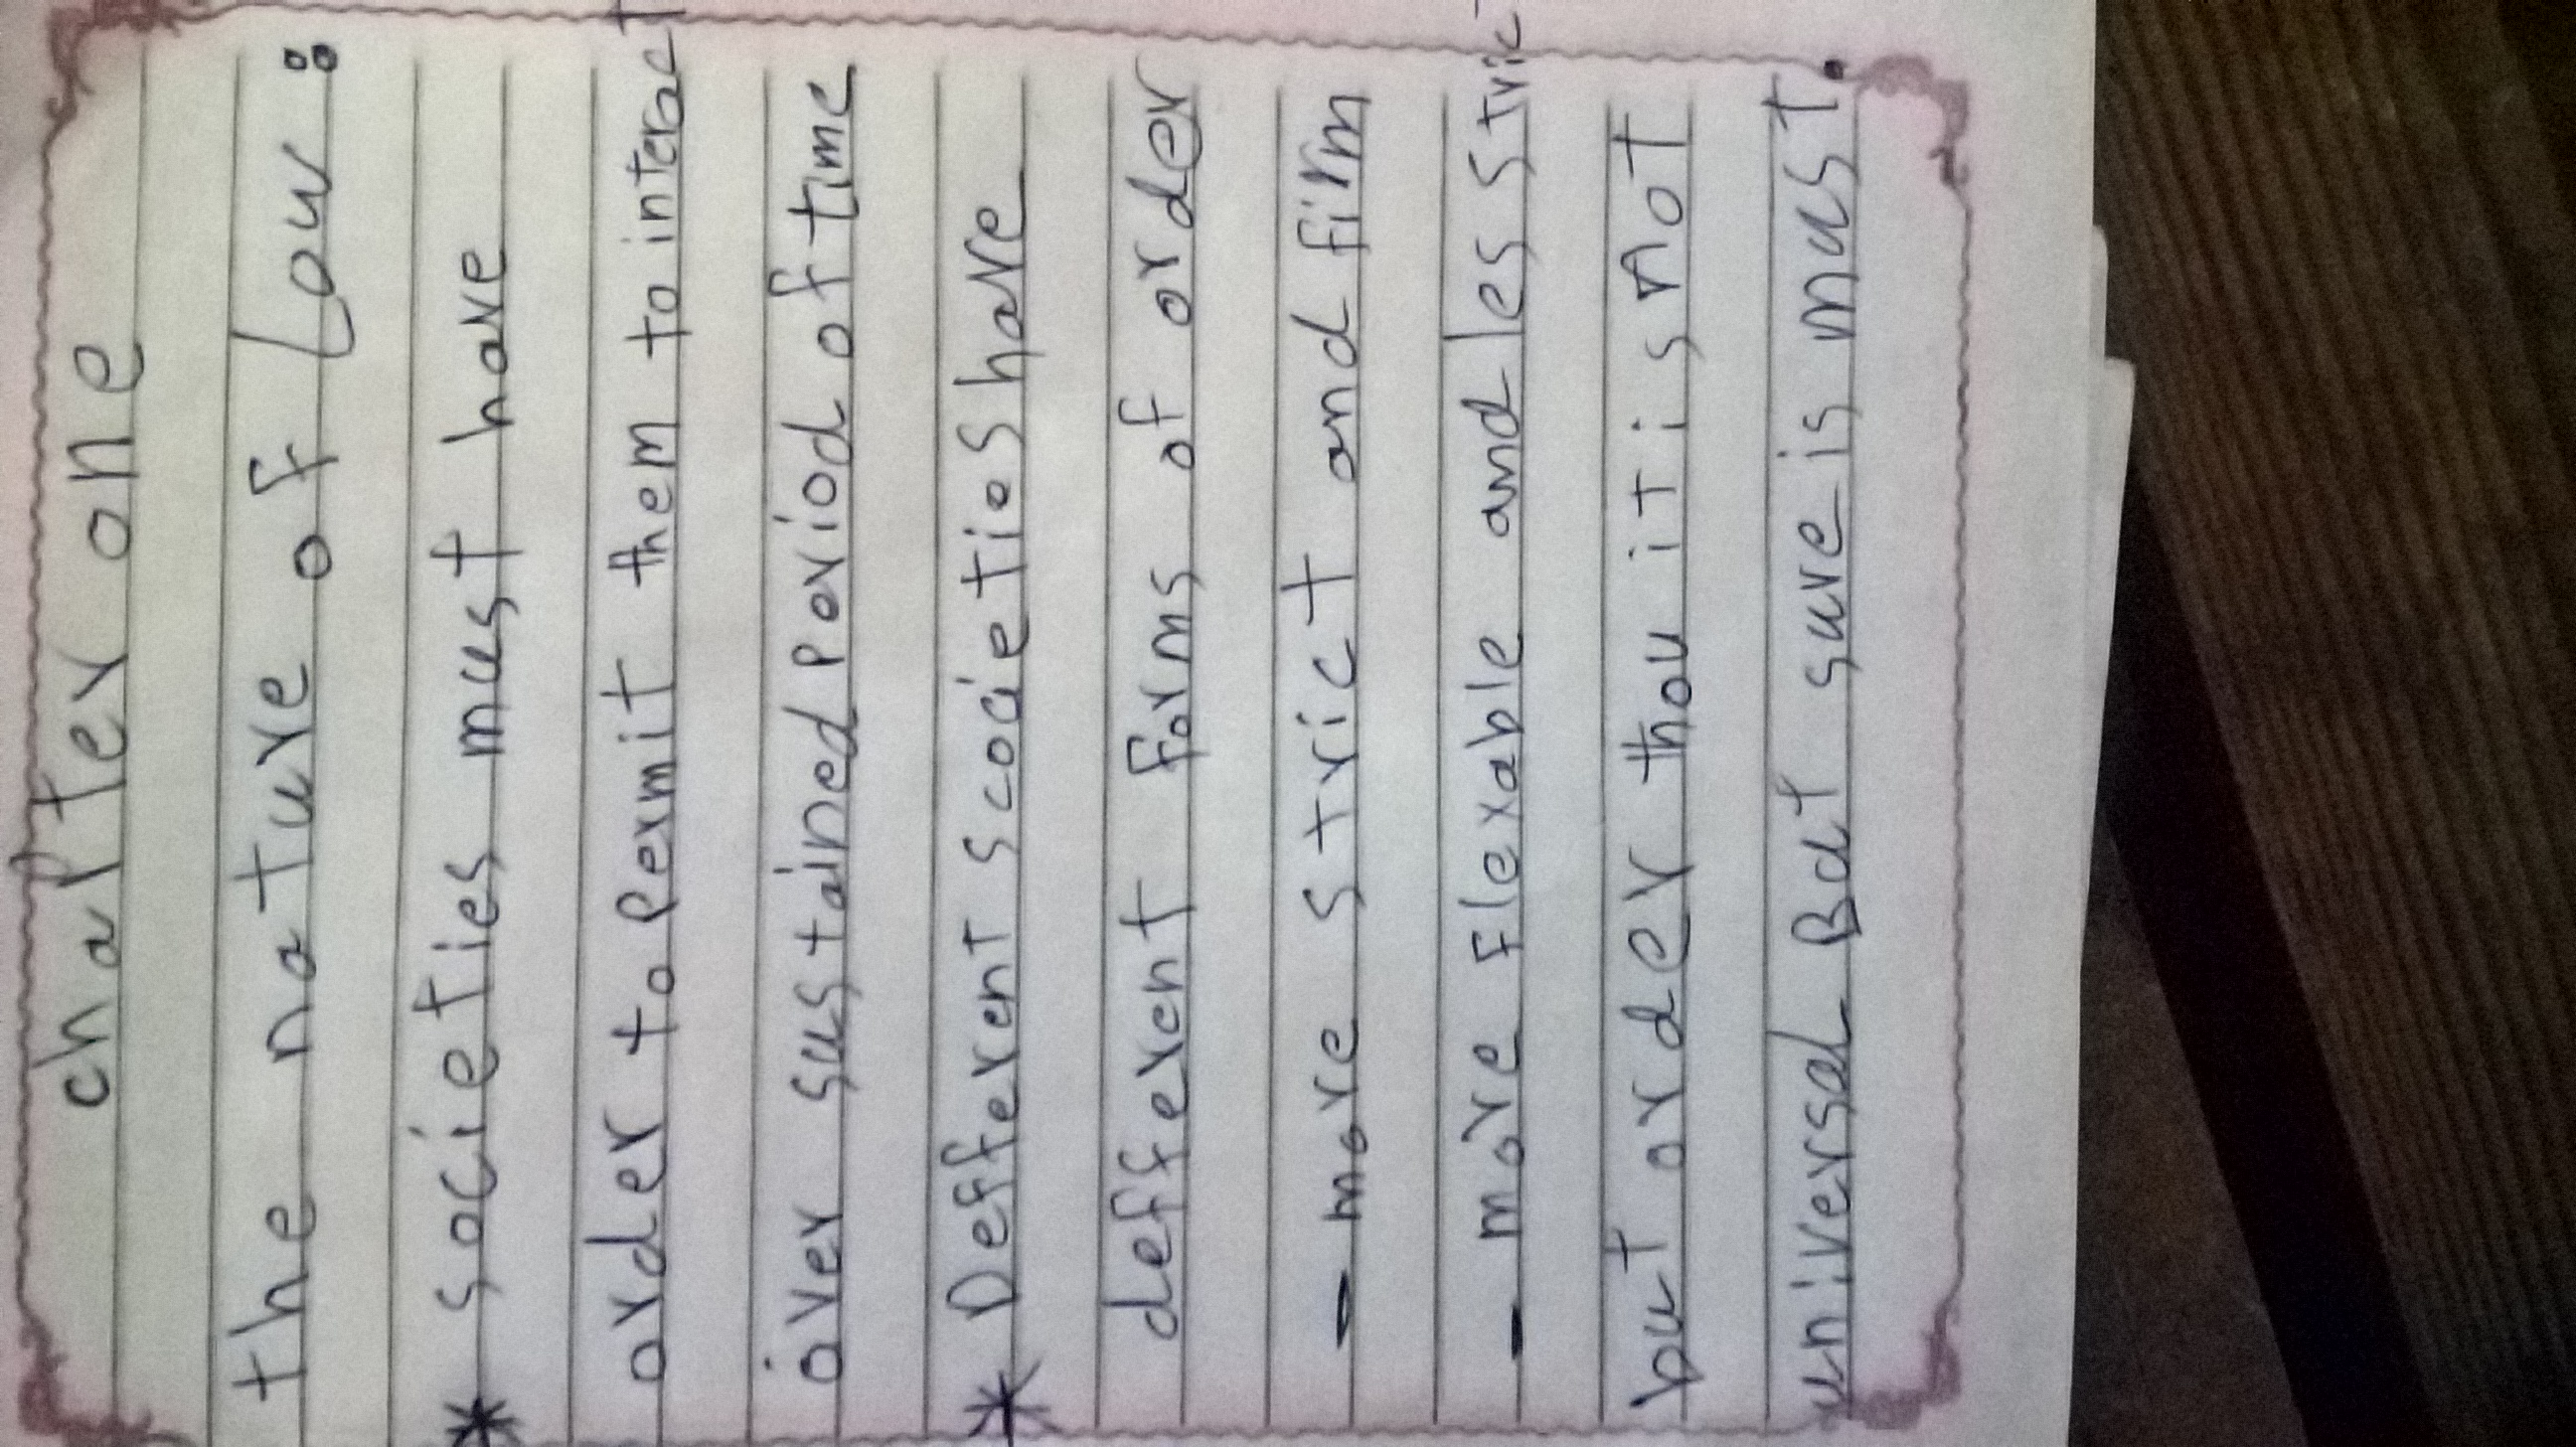 chapter one
the nature of Low :
* societies must have
order to permit them to interact
over sustained period of time
* Defferent scocieties have
defferent forms of order
- more strict and firm
- more flexable and les strict
but order thou it is not
universal But sure is must.